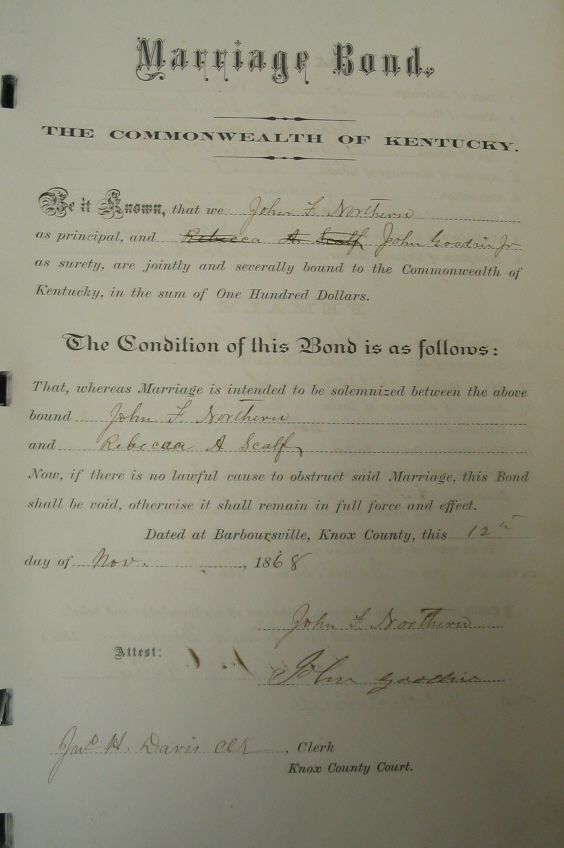 Marriage Bond.
THE COMMONWEALTH OF KENTUCKY.
Be it Known, that we John F. Northern
as principal, and Rebecca A. Scalf John Goodin Jr.
as surety, are jointly and severally bound to the Commonwealth of
Kentucky, in the sum of One Hundred Dollars.
The Condition of this Bond is as follows:
That, whereas Marriage is intended to be solemnized between the above
bound John F Northern
and Rebecaa A Scalf
Now, if there is no lawful cause to obstruct said Marriage, this Bond
shall be void, otherwise it shall remain in full force and effect.
Dated at Barboursville, Knox County, this 12th
day of Nov. , 1868
John F. Northern
Attest:
John Goodin
Jno H. Davis Clk , Clerk
Knox County Court.